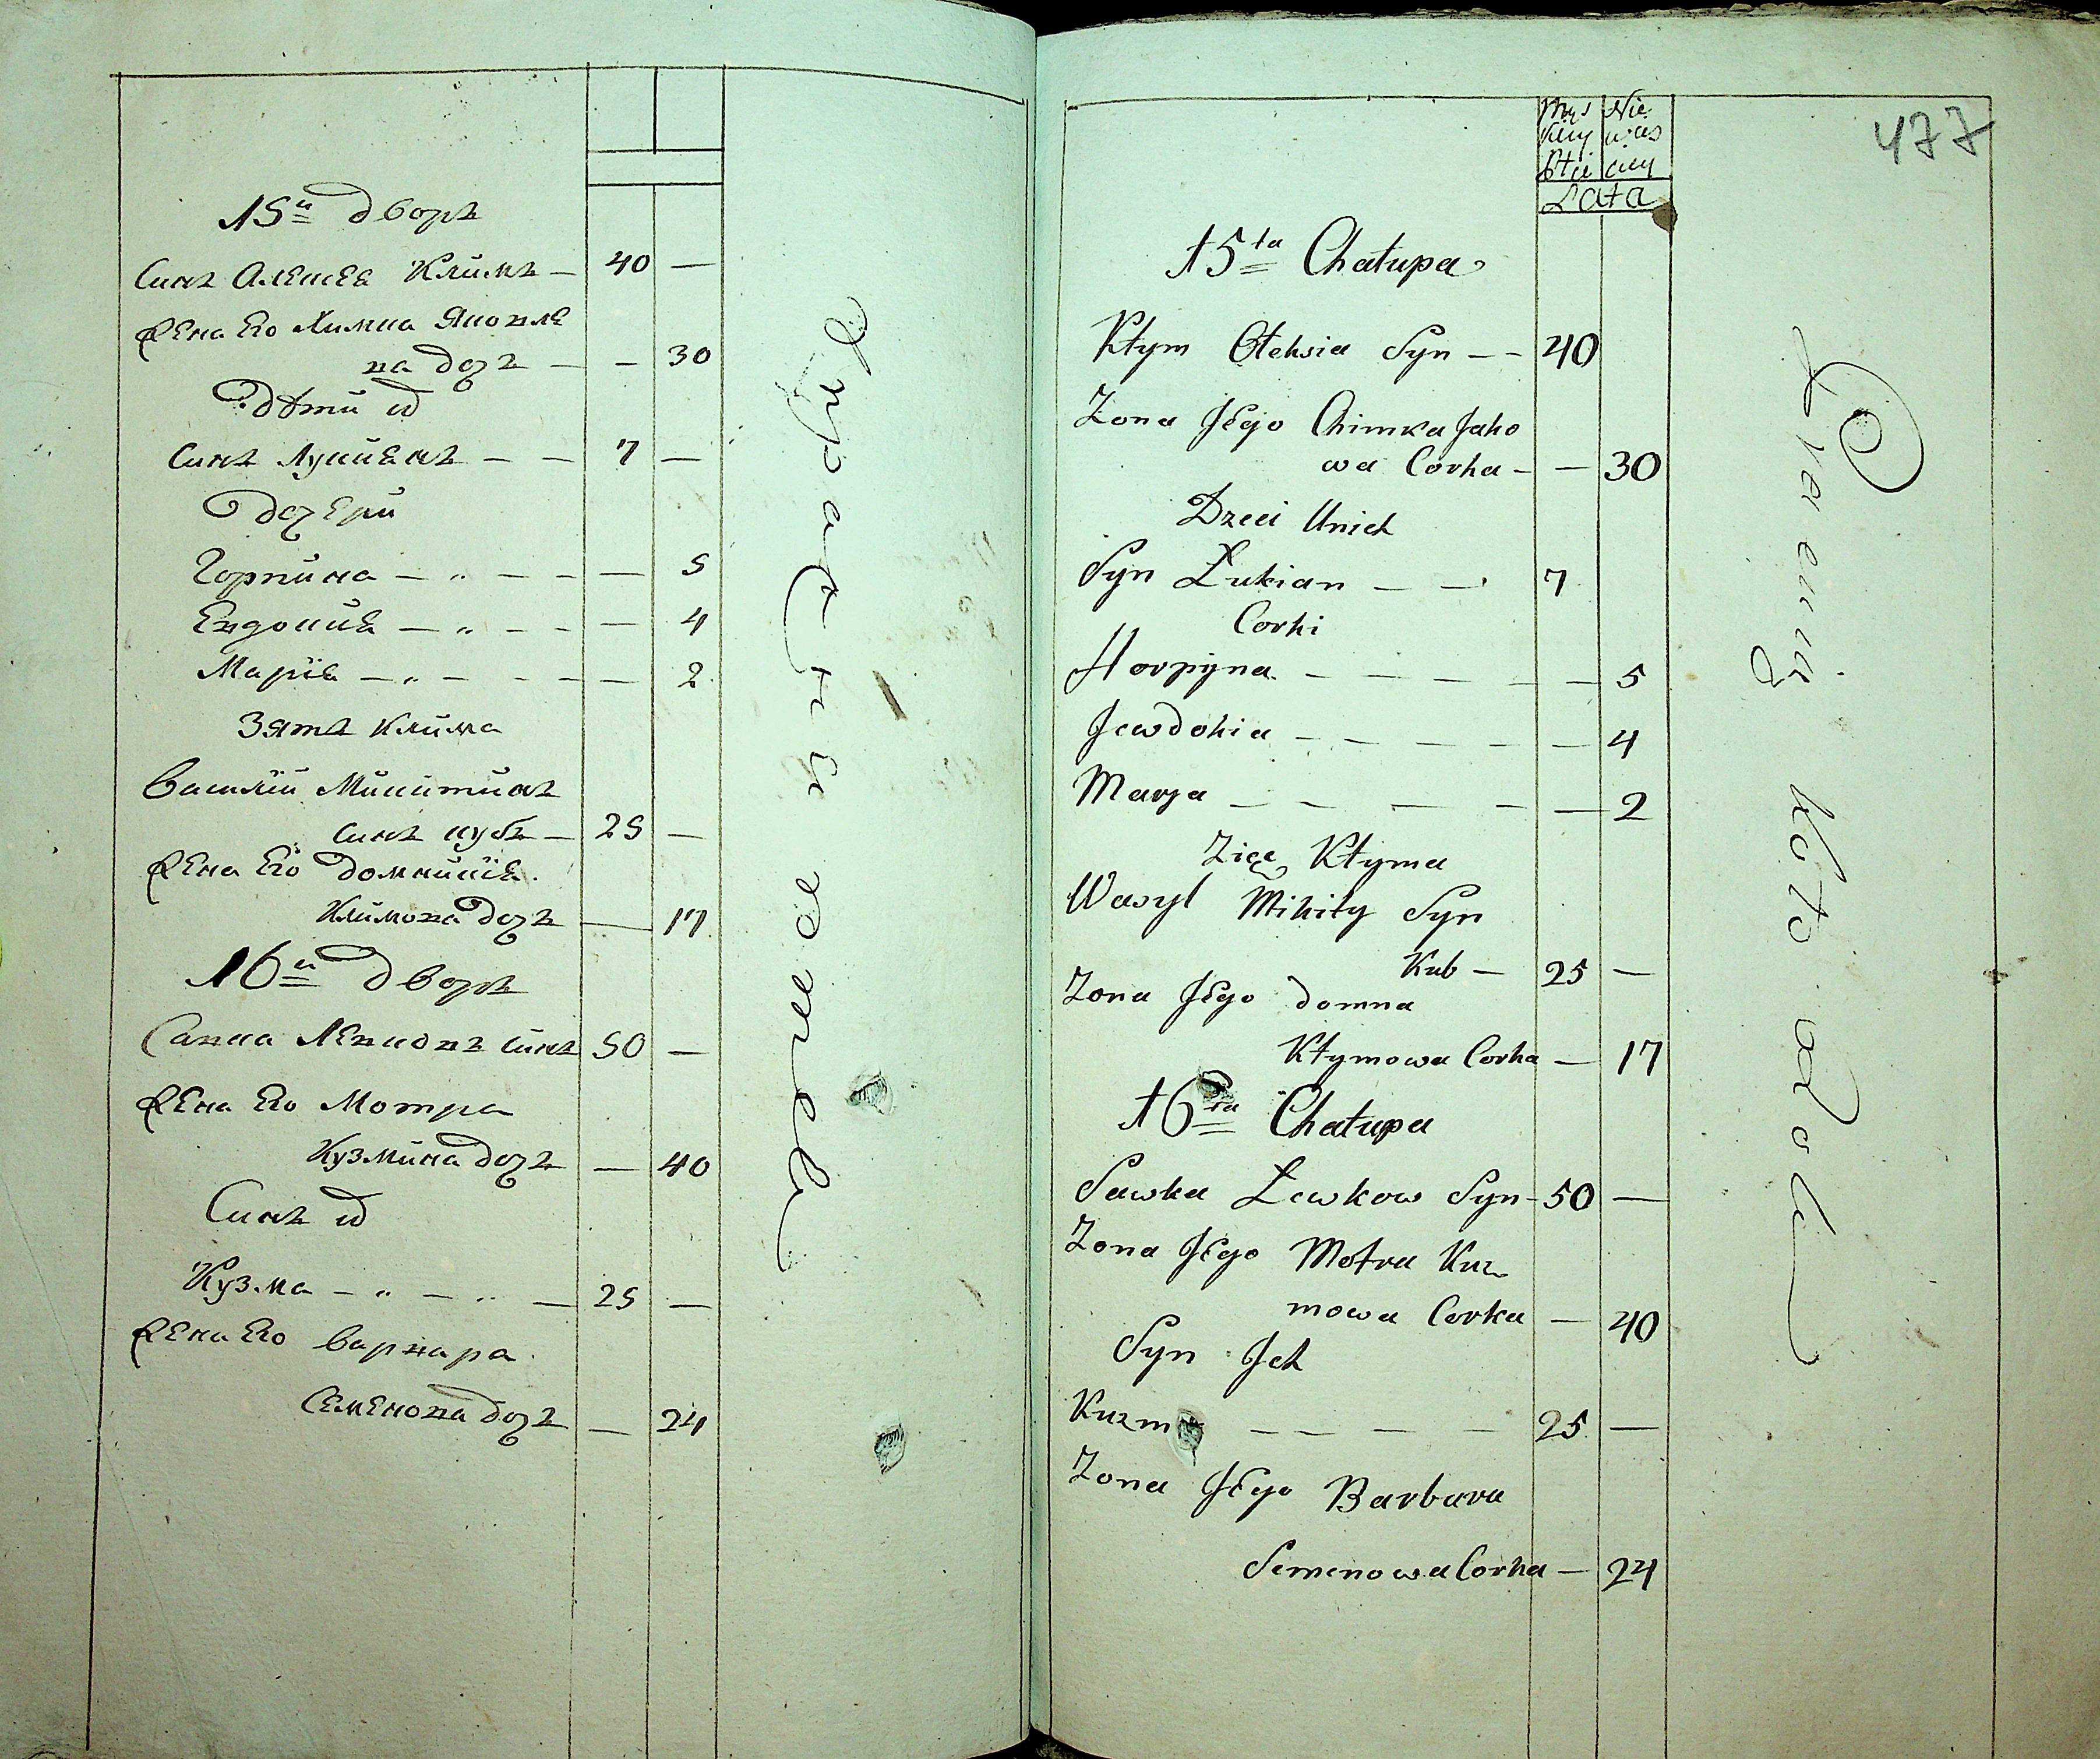 15й дворъ
Синъ Алексѣя Климъ — 40 —
Жена Его Химка Яковле
ва дочъ — — 30
дѣти их
Синъ Лукиянъ — — 7 —
дочери
Горпина — „ — — — 5
Евдокия — „ — — — 4
Марія — „ — — — — 2
Зять Клима
Василій Микитинъ
Синъ кубъ — 25 —
Жена Его домникія
Климова дочъ — 17
16й дворъ
Савка Левковъ Синъ 50 —
Жена Его Мотра
Кузмина дочъ — 40
Синъ их
Кузма — „ — „ — 25 —
Жена Его Варвара
Семенова дочъ — 24
477
Męs
kiey
Płci
Nie
wias
ciey
Lata
15ta Chałupa
Kłym Ołeksia Syn — — 40
Zona Jego Chimka Jako
wa Corka — — 30
Dzieci Unich
Syn Łukian — — 7
Corki
Horpyna — — — — — — 5
Jewdokia — — — — — — 4
Marya — — — — — 2
Zięć Kłyma
Wasyl Mikity Syn
Kub — 25 —
Zona Jego domna
Kłymowa Corka — 17
16ta Chałupa
Sawka Lewkow Syn — 50 —
Zona Jego Motra Kuz
mowa Corka — 40
Syn Ich
Kuzm — — — — 25 —
Zona Jego Barbara
Semenowa Corka — 24